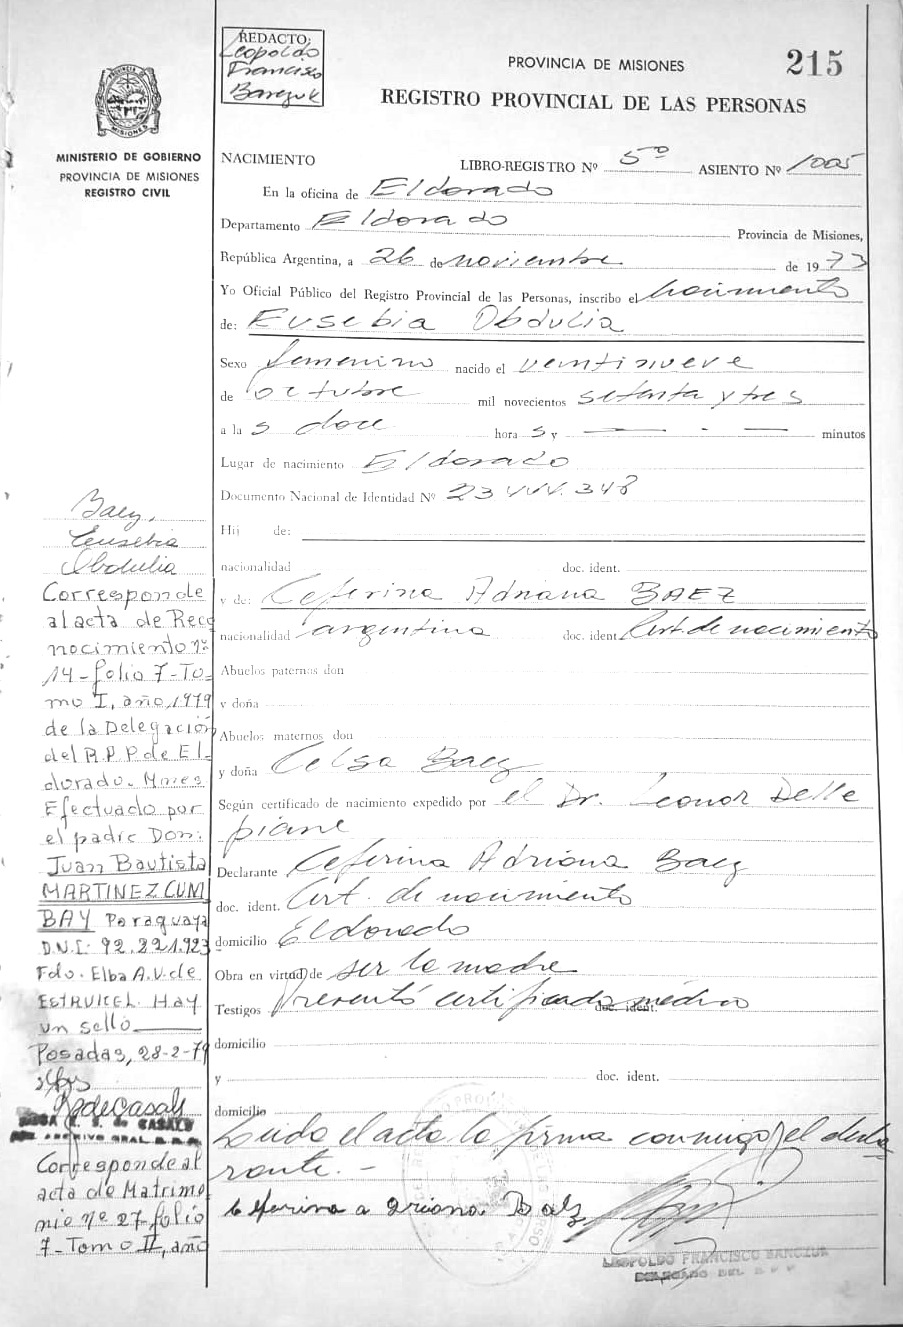 REDACTO:
Leopoldo
Francisco
Banczuk
PROVINCIA DE MISIONES
215
REGISTRO PROVINCIAL DE LAS PERSONAS
PROVINCIA DE MISIONES
MINISTERIO DE GOBIERNO
PROVINCIA DE MISIONES
REGISTRO CIVIL
NACIMIENTO LIBRO-REGISTRO Nº 5º ASIENTO Nº 1005
En la oficina de Eldorado
Departamento Eldorado Provincia de Misiones,
República Argentina, a 26 de noviembre de 1973
Yo Oficial Público del Registro Provincial de las Personas, inscribo el Nacimiento
de: Eusebia Obdulia
Sexo femenino nacido el veintinueve
de octubre mil novecientos setenta y tres
a las doce horas y — - — minutos
Lugar de nacimiento Eldorado
Documento Nacional de Identidad Nº 23 .348
Hij de:
nacionalidad doc. ident.
y de: Ceferina Adriana BAEZ
nacionalidad argentina doc. ident. Cert. de nacimiento
Abuelos paternos don
y doña
Abuelos maternos don
y doña Celsa Baez
Según certificado de nacimiento expedido por el Dr. Leonor Delle
piane
Declarante Ceferina Adriana Baez
doc. ident. Cert. de nacimiento
domicilio Eldorado
Obra en virtud de ser la madre
Testigos Presentó certificado médico doc. ident.
domicilio
y doc. ident.
domicilio
Leida el acta la firma conmigo el decla
rante. -
Ceferina adriana Baez
LEOPOLDO FRANCISCO BANCZUK
DELEGADO DEL R P P
Baez,
Eusebia
Obdulia
Corresponde
al acta de Reco
nocimiento nº
14-folio 7-To-
mo I, año 1979
de la Delegación
del R.P.P de El-
dorado. Mnes
Efectuado por
el padre Don:
Juan Bautista
MARTINEZ CUM
BAY Paraguaya
D.N.I: 92.221.923
Fdo. Elba A.V. de
ESTRUICEL. Hay
un sello
Posadas, 28-2-79
R de Casals
ROSA E. S. de CASALS
Corresponde al
acta de Matrimo
nio nº 27-folio
7-Tomo II, año